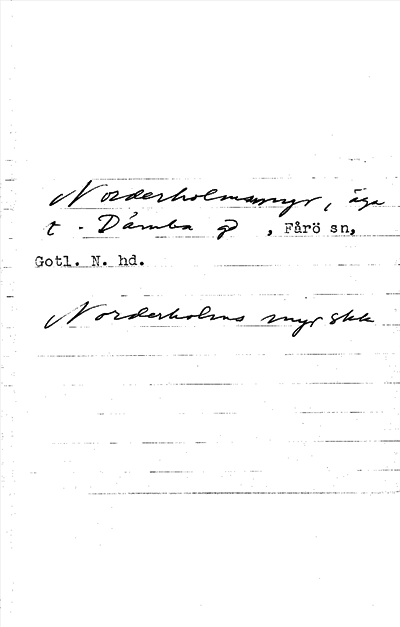 Norderholmsmyr, äga
t. Dämba g, Fårö sn,
Gotl. N. hd.
Norderholms myr skk